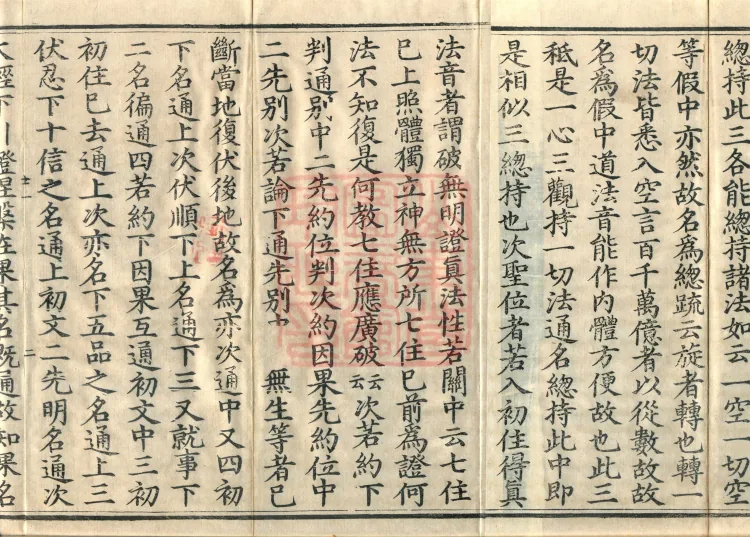 總持此三各能總持諸法如云一空一切空
等假中亦然故名爲總疏云旋者轉也轉一
切法皆悉入空言百千萬億者以從數故故
名爲假中道法音能作內體方便故也此三
秖是一心三觀持一切法通名總持此中即
是相似三總持也次聖位者若入初住得眞
法音者謂破無明證眞法性若關中云七住
巳上照體獨立神無方所七住巳前爲證何
法不知復是何教七住應廣破云云次若約下
判通別中二先約位判次約因果先約位中
二先別次若論下通先別中 無生等者巳
斷當地復伏後地故名爲亦次通中又四初
下名通上次伏順下上名通下三又就事下
二名徧通四若約下因果互通初文中三初
初住巳去通上次亦名下五品之名通上三
伏忍下十信之名通上初文二先明名通次
大經下引證涅槃在果其名旣通故知果名
十一
二